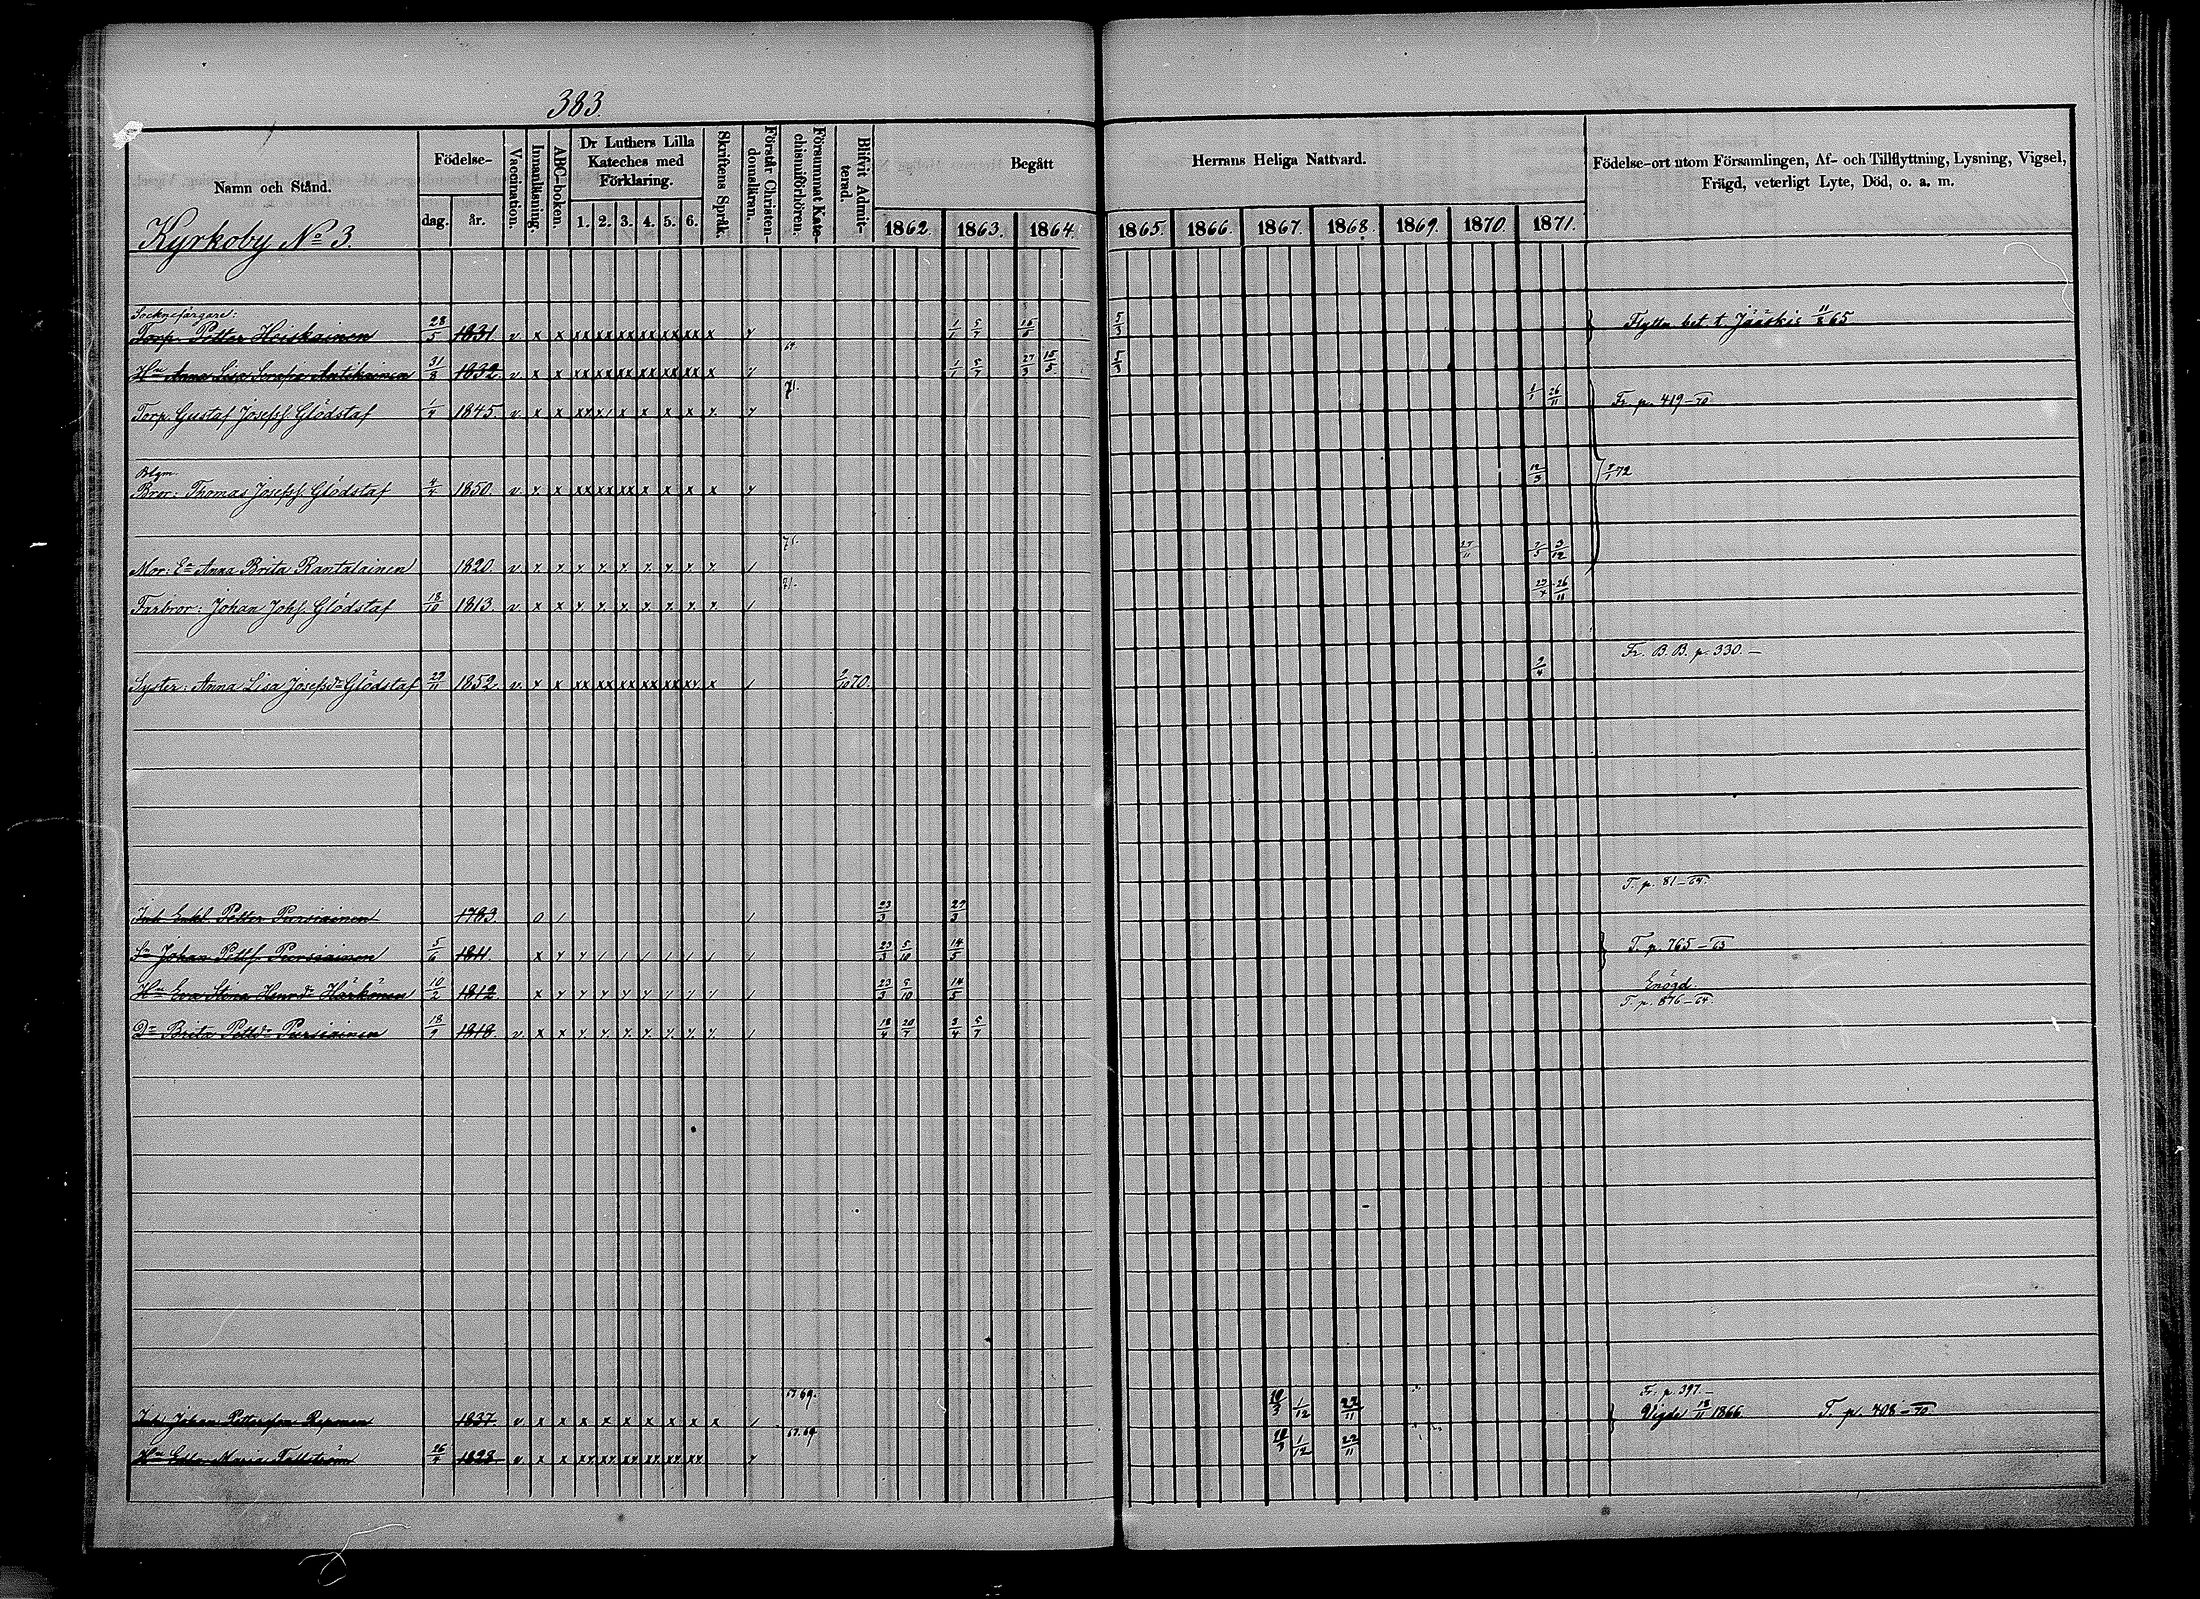 383.
Namn och Stånd.
Födelse-
dag. år.
Vaccination.
Innanläsning.
ABC-boken.
Dr Luthers Lilla
Kateches med
Förklaring.
1. 2. 3. 4. 5. 6.
Skriftens Språk.
Förstår Christen-
domsläran.
Försummat Kate-
chismiförhören.
Blifvit Admit-
terad.
Begått Herrans Heliga Nattvard.
1862. 1863. 1864. 1865. 1866. 1867. 1868. 1869. 1870. 1871.
Födelse-ort utom Församlingen, Af- och Tillflyttning, Lysning, Vigsel,
Frägd, veterligt Lyte, Död, o. a. m.
Kyrkoby No 3.
Socknefärgare:
Torp. Petter Heiskainen 28/5 1831 v x x xx xx xx xx xx xx x 1/1 5/7 5/3 Flytta bet. t. Jääskis 65
Hu Anna Lisa Antikainen 31/8 1832 v x x xx xx xx xx xx xx x 1/1 5/7 27/3 15/5 5/3
Torp. Gustaf Josefsf. Glödstaf 1845 v x x 71. 1/1 26/11 Fr. p. 419-70
Blgm.
Bror: Thomas Josefsf. Glödstaf 4/4 1850. v x x xx xx xx x x x x 12/3 72
Mor: Ea Anna Brita Rantalainen 1820. v 71. 27/11 3/12
Farbror: Johan Johsf. Glödstaf 18/10 1813 v x x 71. 26/11
Fr. B. B. p. 330.-
Syster: Anna Lisa Josefsdr Glödstaf 29/11 1852 v x x xx xx xx xx xx x 70. 2/4
T. p. 81-64.
Inh. Enkl. Petter Pursiainen 1783 0 1 23/3 29/3
Sn Johan Pettf. Pursiainen 5/6 1811. x 23/3 5/10 14/5 T. p. 765-63
Hu Eva Stina Henrdr Härkönen 10/2 1812 x 23/3 5/10 14/5 Enögd.
T. p. 876-64.
Dr Brita Pettdr Pursiainen 18/9 1818. v x x 18/4 20/7 3/4 5/7
Fr. p. 397.-
Inh. Johan Pettersson Reponen 1837 v x x x x x x x x x 69. 1/12 22/11 Vigde 18/11 1866. T. p. 408-70
Hu Maria 26/4 1828 v x x 67.69 1/12 22/11